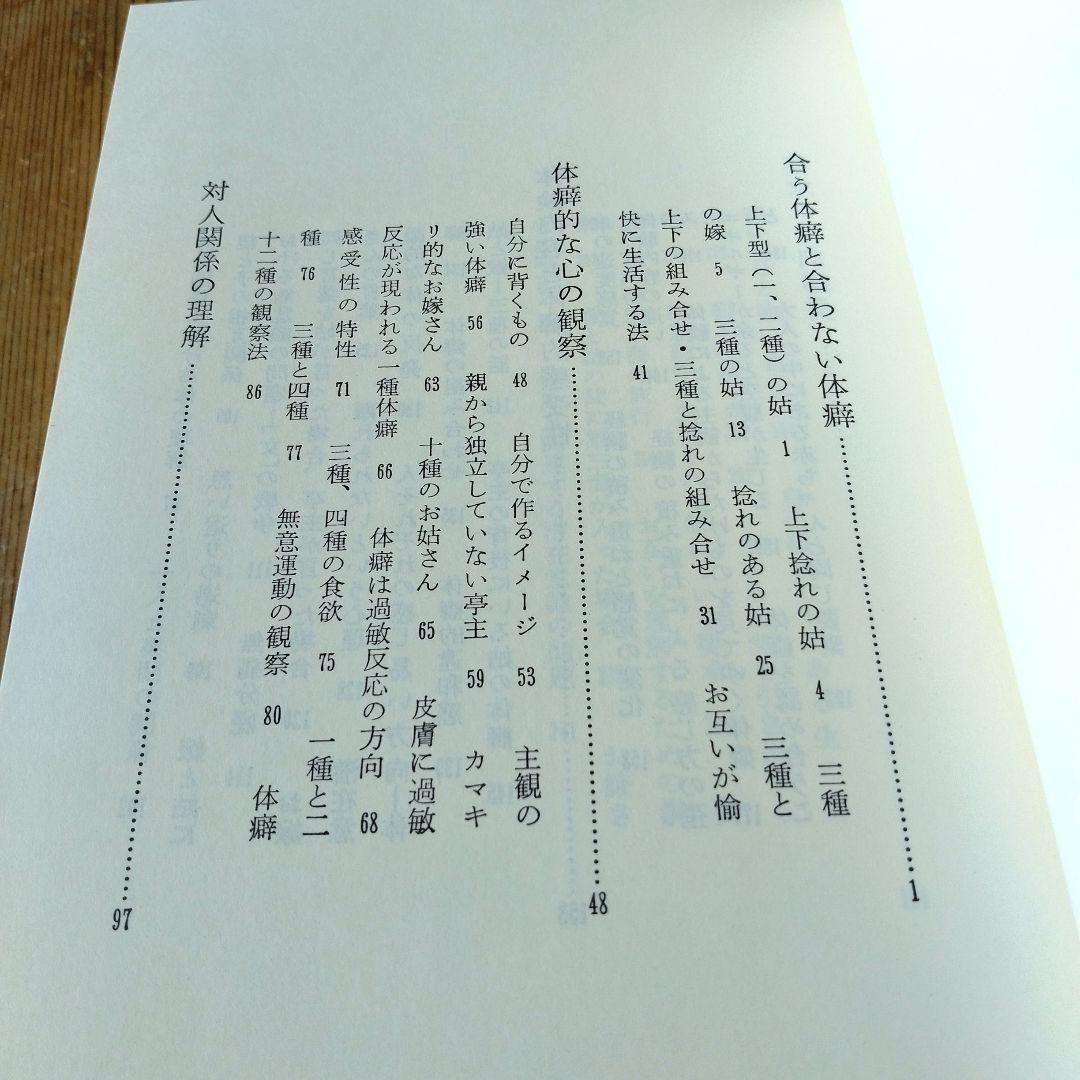 合う体癖と合わない体癖……………………1
上下型(一、二種)の姑 1 上下捻れの姑 4 三種
の嫁 5 三種の姑 13 捻れのある姑 25 三種と
上下の組み合せ・三種と捻れの組み合せ 31 お互いが愉
快に生活する法 41
体癖的な心の観察……………………48
自分に背くもの 48 自分で作るイメージ 53 主観の
強い体癖 56 親から独立していない亭主 59 カマキ
リ的なお嫁さん 63 十種のお姑さん 65 皮膚に過敏
反応が現われる一種体癖 66 体癖は過敏反応の方向 68
感受性の特性 71 三種、四種の食欲 75 一種と二
種 76 三種と四種 77 無意運動の観察 80 体癖
十二種の観察法 86
対人関係の理解……………………97